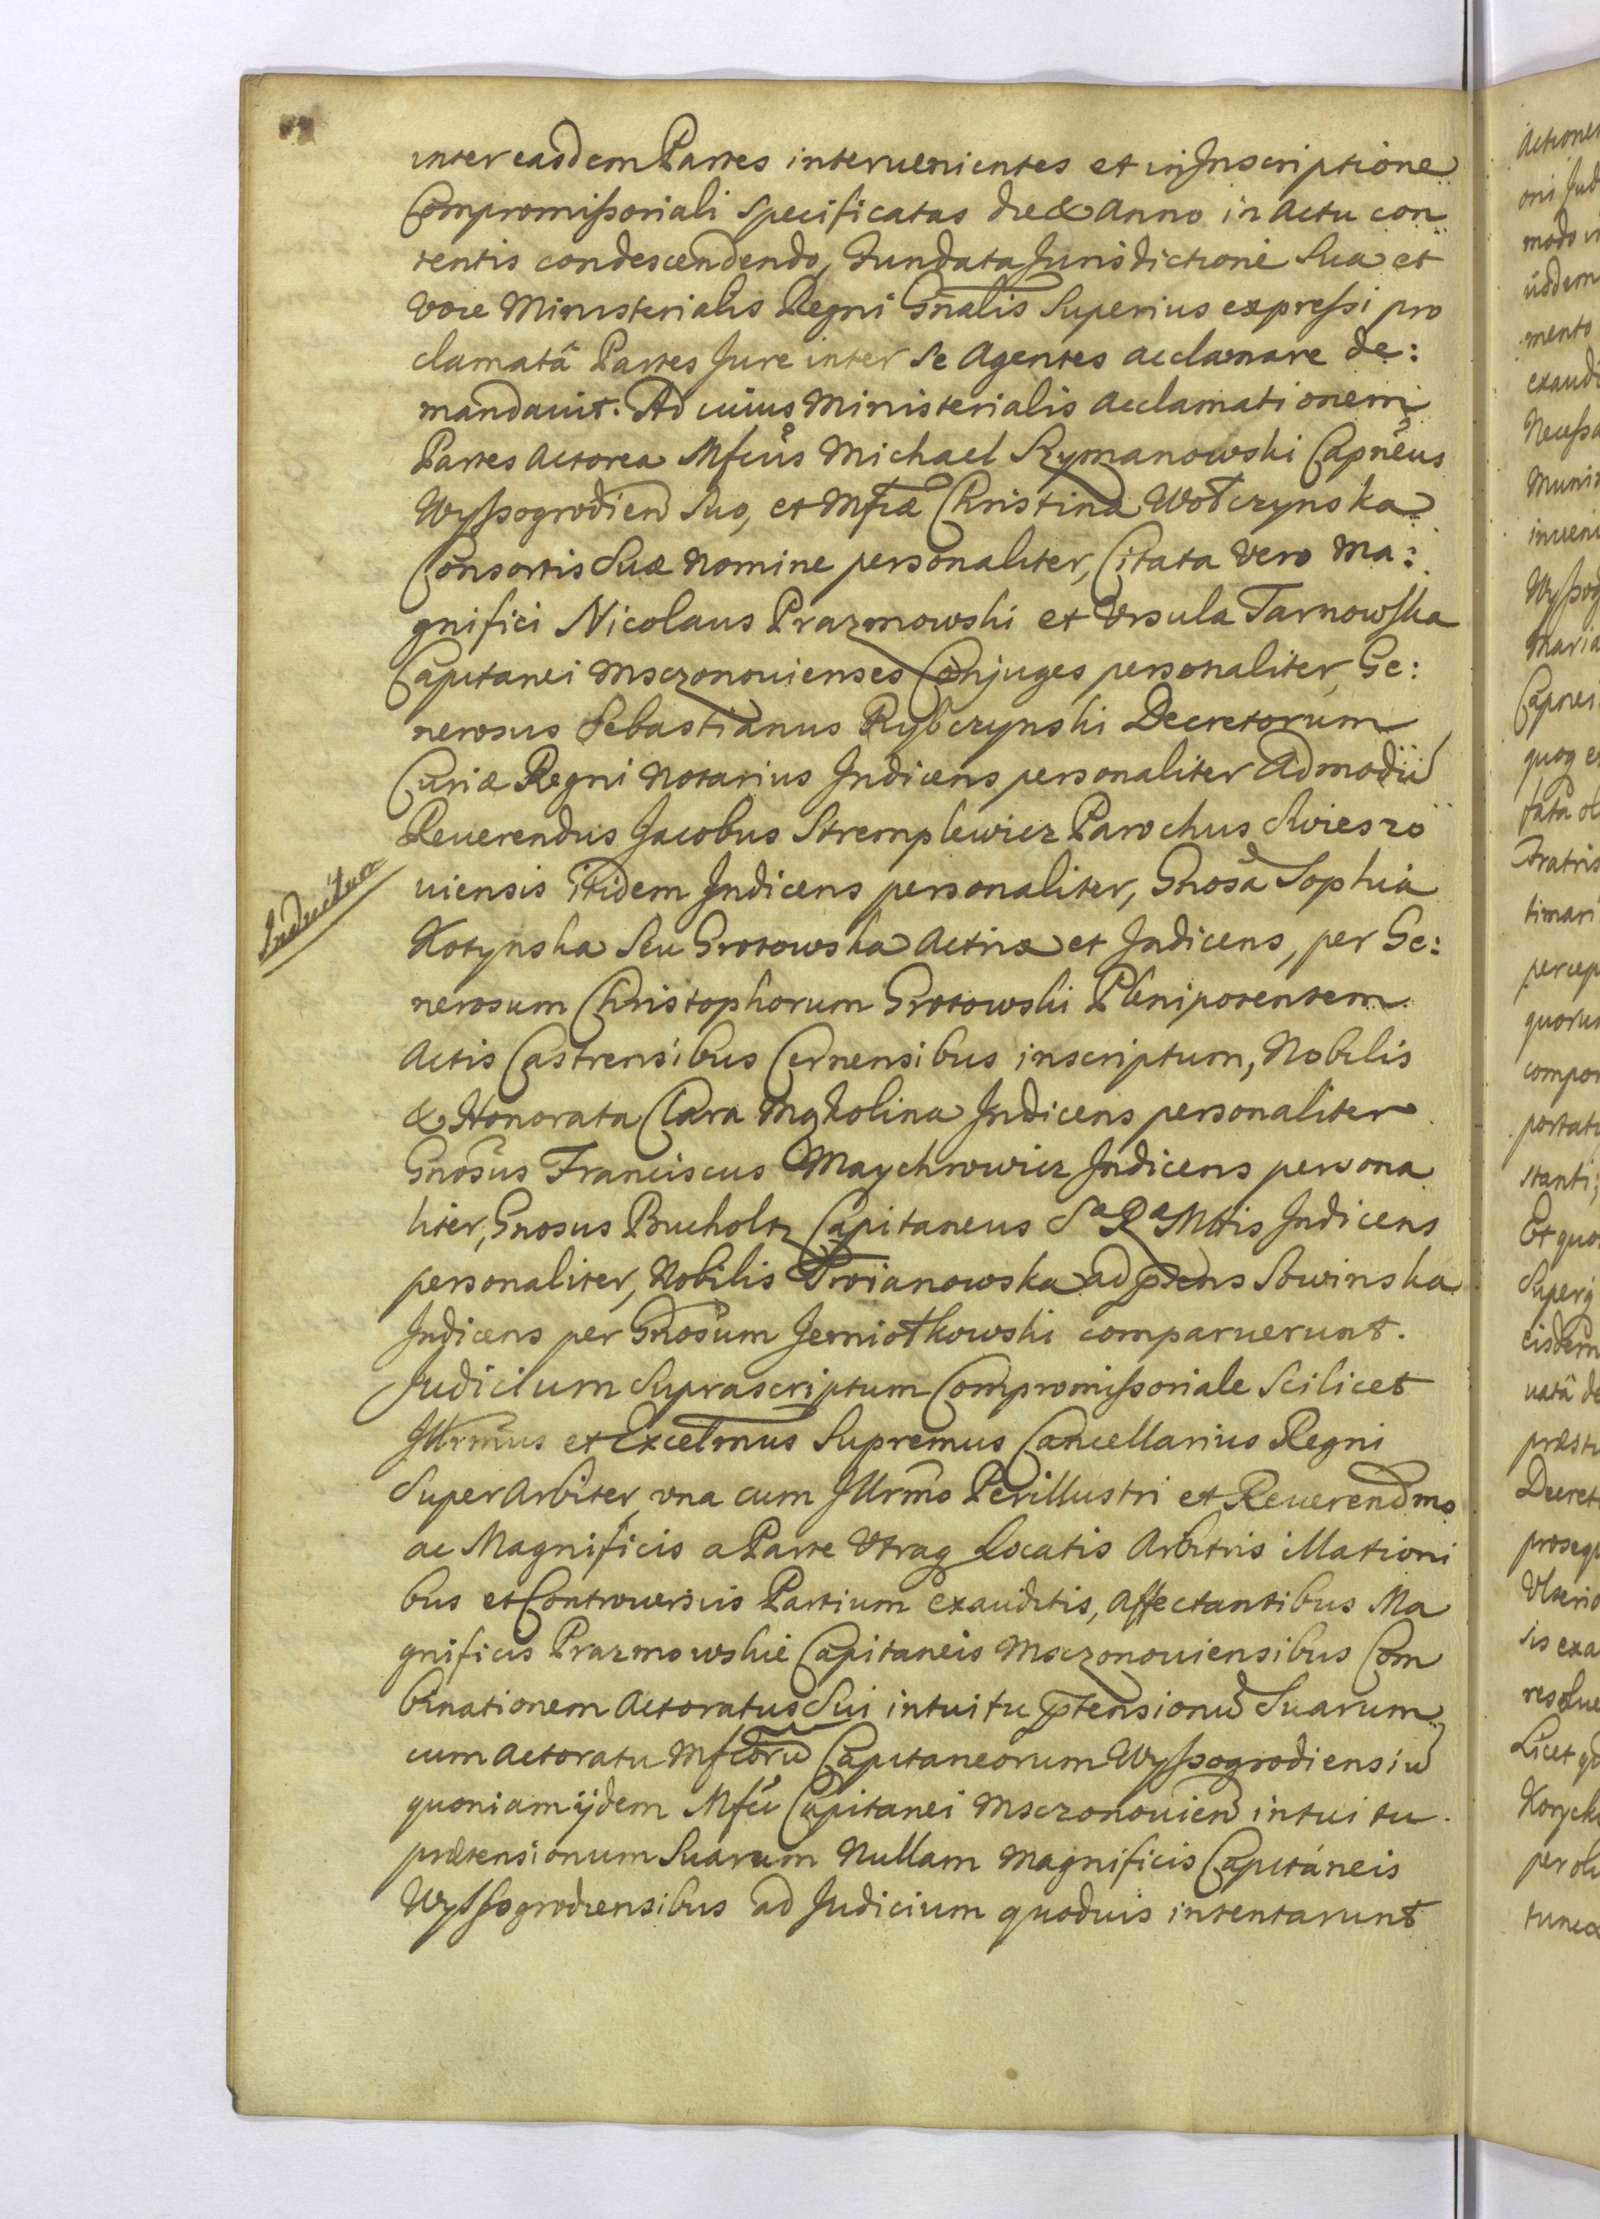 inter easdem Partes interuenientes et in Inscriptione
Compromißoriali Specificatas die & Anno in Actu con
tentis condescendendo, Fundata Jurisdictione Sua et
voce Ministerialis Regni Gnalis Superius expreßi pro
clamatâ Partes Jure inter Se Agentes acclamare de:
mandauit. Ad cuius Ministerialis acclamationem
Partes Actorea Mfcus Michael Szymanowski Capneus
Wyßogrodien Suo, et Mfcæ Christina Wołczynska
Consortis Suæ Nomine personaliter, Citata vero Ma:
gnifici Nicolaus Prazmowski et Vrsula Tarnowska
Capitanei Msczonouienses Conjuges personaliter, Ge:
nerosus Sebastianus Rybczynski Decretorum
Curiæ Regni Notarius Indicens personaliter Admodũ
Reuerendus Jacobus Stremplewicz Parochus Swieszo
uiensis itidem Indicens personaliter, Gnosa Sophia
Kotynska Seu Grotowska Actrix et Indicens, per Ge:
nerosum Christophorum Grotowski Plenipotentem
Actis Castrensibus Cernensibus inscriptum, Nobilis
& Honorata Clara Indicens personaliter
Gnosus Franciscus Maychrowicz Indicens persona
liter, Gnosus Bucholtz Capitaneus Sæ Ræ Mttis Indicens
personaliter, Nobilis Troianowska ad præns Sowinska
Indicens per Gnosum Jemiołkowski comparuerunt.
Judicium Suprascriptum Compromißoriale Scilicet
Illrmus et Excelmus Supremus Cancellarius Regni
SuperArbiter, vna cum Illrmo Perillustri et Reuerendmo
ac Magnificis a Parte Vtraq Locatis Arbitris illationi
bus et Controuersiis Partium exauditis, Affectantibus Ma
gnificis Prazmowskie Capitaneis Msczonouiensibus Com
binationem Actoratus Sui intuitu ptensionũ Suarum
cum Actoratu Mfcorũ Capitaneorum Wyßogrodiensiũ
quoniam ijdem Mfci Capitanei Msczonouien intuitu
prætensionum Suarum Nullam Magnificis Capitaneis
Wyßogrodiensibus ad Judicium quoduis intentarunt
Inducitur